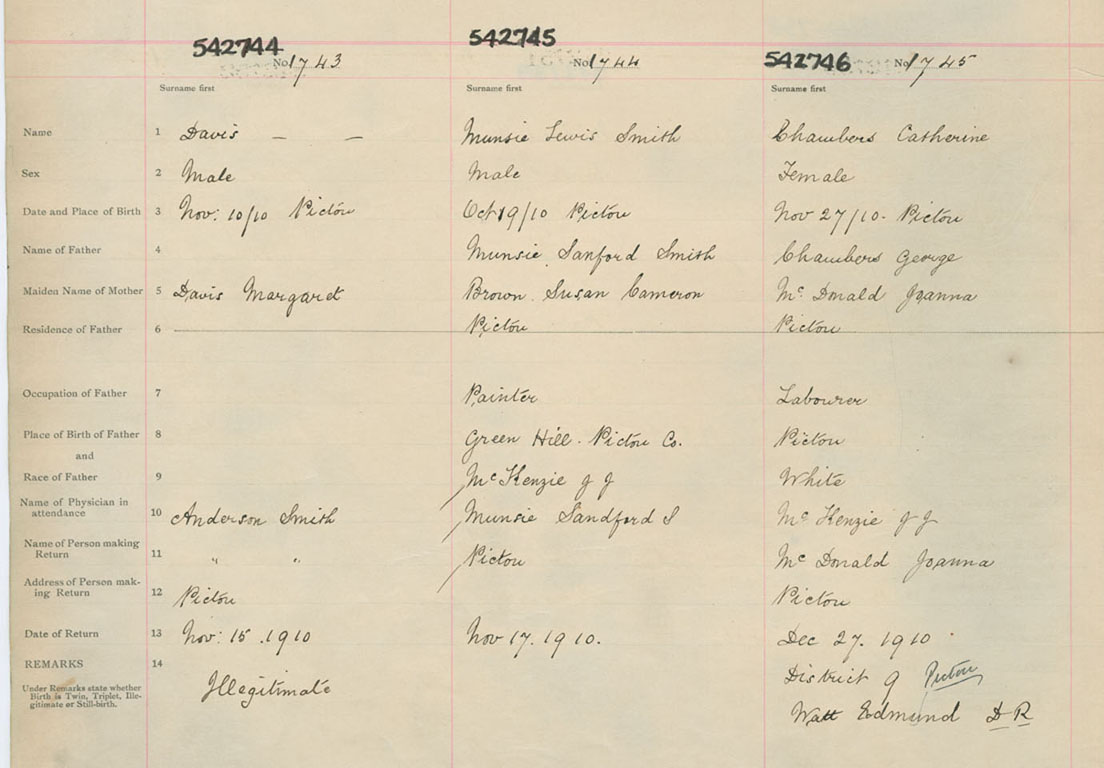 542744 542745 542746
No 1743 No 1744 No 1745
Surname first Surname first Surname first
Name 1 Davis — — Munsie Lewis Smith Chambers Catherine
Sex 2 Male Male Female
Date and Place of Birth 3 Nov: 10/10 Pictou Oct 19/10 Pictou Nov 27/10. Pictou
Name of Father 4 Munsie Sanford Smith Chambers George
Maiden Name of Mother 5 Davis Margaret Brown Susan Cameron Mc Donald Joanna
Residence of Father 6 Pictou Pictou
Occupation of Father 7 Painter Labourer
Place of Birth of Father 8 Green Hill. Pictou Co. Pictou
and
Race of Father 9 McKenzie J J White
Name of Physician in
attendance 10 Anderson Smith Munsie Sandford S Mc Kenzie J J
Name of Person making
Return 11 " " Pictou Mc Donald Joanna
Address of Person mak-
ing Return 12 Pictou Pictou
Date of Return 13 Nov: 15. 1910 Nov 17. 1910. Dec 27. 1910
REMARKS 14
Under Remarks state whether
Birth is Twin, Triplet, Ille-
gitimate or Still-birth.
Illegitimate District 9 Pictou
Watt Edmund D R